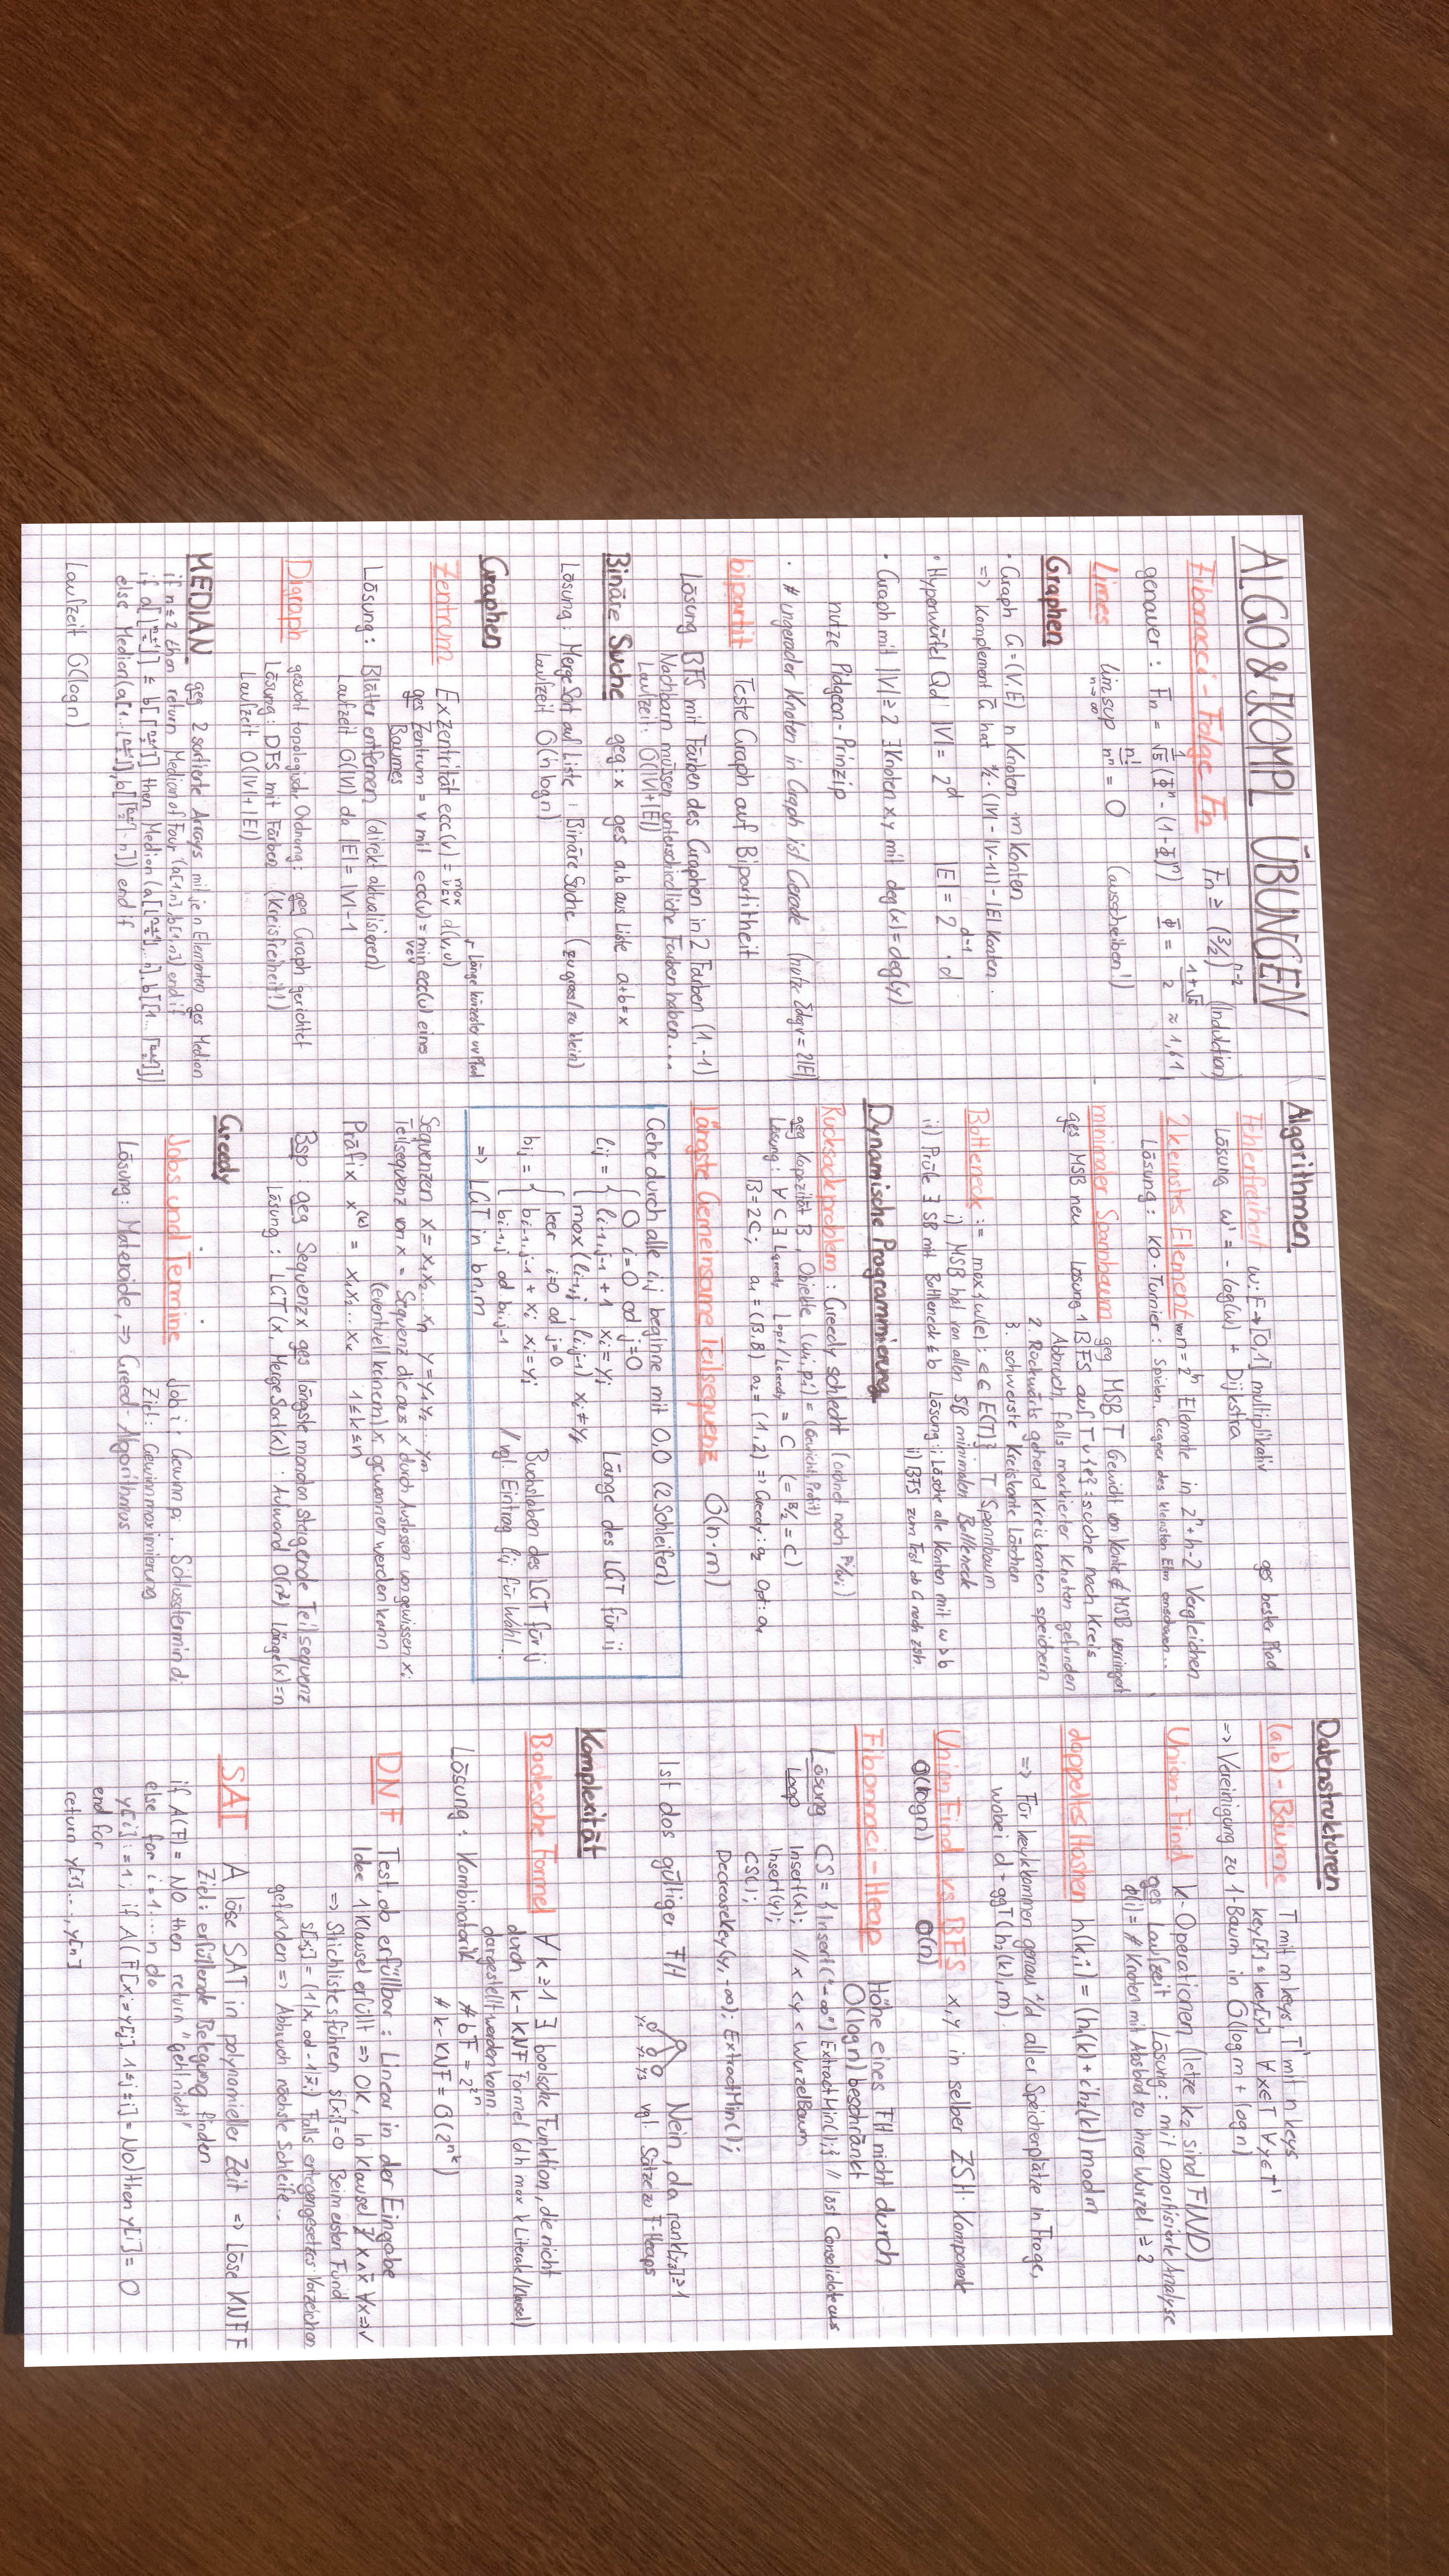 ALGO & KOMPL ÜBUNGEN
Fibonacci-Folge Fn    Fn ≥ (3/2)^(n-2) (Induktion)
genauer: Fn = 1/√5 (Φ^n - (1-Φ)^n)    Φ = (1+√5)/2 ≈ 1,61
Limes    lim sup n→∞ n!/n^n = 0    (ausschreiben!)
Graphen
· Graph G=(V,E) n Knoten m Kanten
=> Komplement G̅ hat ½·(|V|·|V-1|)-|E| Kanten.
· Hyperwürfel Qd |V| = 2^d    |E| = 2^(d-1) · d
· Graph mit |V| ≥ 2 ∃ Knoten x,y mit deg(x)=deg(y)
nutze Pidgeon-Prinzip
· # ungerader Knoten in Graph ist Gerade (nutze Σdegv = 2|E|)
bipartit    Teste Graph auf Bipartitheit
Lösung BFS mit Färben des Graphen in 2 Farben (1,-1)
Nachbarn müssen unterschiedliche Farben haben...
Laufzeit: O(|V|+|E|)
Binäre Suche    geg: x ges a,b aus Liste a+b=x
Lösung: MergeSort auf Liste, Binäre Suche (zu gross/zu klein)
Laufzeit O(n logn)
Graphen
Zentrum    Exzentrität ecc(v) = max d(v,u)    Länge kürzester uv Pfad
ges Zentrum = v mit ecc(v) = min ecc(u) eines
Baumes
Lösung: Blätter entfernen (direkt aktualisieren)
Laufzeit O(|V|) da |E| = |V|-1
Digraph    gesucht topologische Ordnung; geg Graph gerichtet
Lösung: DFS mit Färben (Kreisfreiheit!)
Laufzeit O(|V|+|E|)
MEDIAN    geg 2 sortierte Arrays mit je n Elementen ges Median
if n ≤ 2 then return MedianofFour (a[1,n],b[1,n]) end if
if a[⌊(n+1)/2⌋] ≤ b[⌈(n+1)/2⌉] then Median(a[⌊(n+1)/2⌋...n],b[1...⌈(n+1)/2⌉])
else Median(a[1...⌊(n+1)/2⌋],b[⌈(n+1)/2⌉...n]) end if
Laufzeit O(logn)
Algorithmen
Fehlerfreiheit    w: E → [0,1] multiplikativ    ges bester Pfad
Lösung w' = -log(w) + Dijkstra
2 kleinstes Element    von n = 2^h Elemente in 2^h+h-2 Vergleichen
Lösung: KO-Turnier: Spieler, Gegner des kleinsten Elem anschauen...
minimaler Spannbaum    geg MSB T Gewicht von Kante ∉ MSB verringert
ges MSB neu    Lösung 1 BFS auf T ∪ {e}: suche nach Kreis
Abbruch, falls markierter Knoten gefunden
2. Rückwärts gehend Kreiskanten speichern
3. schwerste Kreiskante löschen
Bottleneck := max{w(e); e ∈ E(T)}    T Spannbaum
i) MSB hat von allen SB minimalen Bottleneck
ii) Prüfe ∃ SB mit Bottleneck ≤ b    Lösung: i Lösche alle Kanten mit w > b
ii) BFS zum Test ob G noch zsh.
Dynamische Programmierung
Rucksackproblem: Greedy schlecht (ordnet nach pi/wi)
geg Kapazität B, Objekte (wi,pi) = (Gewicht, Profit)
Lösung: ∀ C ∃ LGreedy Lopt/LGreedy = C    (= B/2 = C)
B=2C; a1=(B,B) a2=(1,2) => Greedy: a2 Opt: a1
Längste Gemeinsame Teilsequenz    O(n·m)
Gehe durch alle i,j beginne mit 0,0 (2 Schleifen)
lij = { 0    i=0 od j=0
li-1,j-1 + 1    xi = yj    Länge des LGT für ij
max(li-1,j, li,j-1)    xi ≠ yj
bij = { leer    i=0 od j=0
bi-1,j-1 + xi    xi = yj    Buchstaben des LGT für ij
bi-1,j od bi,j-1    // vgl. Eintrag lij für Wahl..
=> LGT in bn,m
Sequenzen x = x1x2...xn    y = y1y2...ym
Teilsequenz von x = Sequenz die aus x durch Auslassen von gewissen xi
(eventuell keinem) xi gewonnen werden kann
Präfix x^(k) = x1x2...xk    1 ≤ k ≤ n
Bsp: geg Sequenz x ges längste monoton steigende Teilsequenz
Lösung: LGT(x, MergeSort(x)): Aufwand O(n²) länge(x)=n
Greedy
Jobs und Termine    Job i: Gewinn pi, Schlusstermin di
Ziel: Gewinnmaximierung
Lösung: Materoide, => Greed-Algorithmus
Datenstrukturen
(a,b)-Bäume    T mit m keys, T' mit n keys
key[x] ≤ key[y] ∀x∈T ∀y∈T'
=> Vereinigung zu 1-Baum in O(log m + log n)
Union-Find    k-Operationen (letze k2 sind FIND)
ges Laufzeit    Lösung: mit amortisierte Analyse
ϕ(i) = # Knoten mit Abstand zu ihrer Wurzel ≥ 2
doppeltes Hashen    h(k,i) = (h1(k) + i·h2(k)) mod m
=> Für key k kommen genau 1/d aller Speicherplätze in Frage,
wobei d = ggT(h2(k),m).
Union Find vs BFS    x,y in selber ZSH. Komponente
O(logn)    O(n)
Fibonacci-Heap    Höhe eines FH nicht durch
O(logn) beschränkt
Lösung CS = {Insert("-∞") ExtractMin();} // löst Consolidate aus
Loop    Insert(x); // x < y < WurzelBaum
Insert(y);
CS();
DecreaseKey(y,-∞); ExtractMin();
Ist das gültiger FH    Nein, da rank[y3] ≥ 1
y1 y2 y3    vgl. Sätze zu F-Heaps
Komplexität
Boolesche Formel    ∀ k ≥ 1 ∃ boolsche Funktion, die nicht
durch k-KNF Formel (dh max k Literale/Klausel)
dargestellt werden kann.
Lösung: Kombinatorik    # bF = 2^(2^n)
# k-KNF = O(2^(n^k))
DNF    Test, ob erfüllbar: Linear in der Eingabe
Idee 1 Klausel erfüllt => OK, In Klausel ∄ x∧x̅ ∀x => ✓
=> Strichliste führen s[xi]=0 Beim ersten Fund
s[xi] = (1|xi od -1|x̅i) Falls entgegengesetztes Vorzeichen
gefunden => Abbruch nächste Schleife...
SAT    A löse SAT in polynomieller Zeit => löse KNF F
Ziel: erfüllende Belegung finden
if A(F) = NO then return "geht nicht"
else for i = 1...n do
y[i] := 1; if A(F[xj = y[j], 1≤j≤i] = No) then y[i] = 0
end for
return y[1]...,y[n]